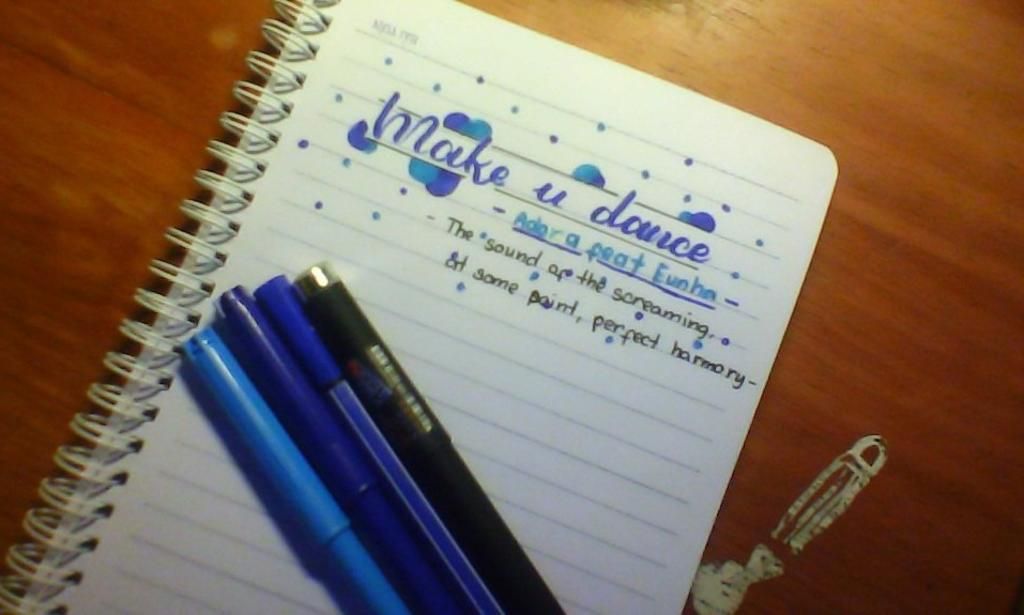 Make u dance
- Adora feat Eunha -
- The sound of the screaming,
at some point, perfect harmony -